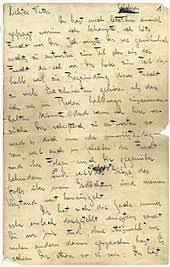 Liebster Vater
Du hast mich letzthin einmal
gefragt, warum ich behaupte, ich hätte
Furcht vor Dir. Ich wusste Dir, wie gewöhnlich,
nichts zu antworten, zum Teil eben aus der
Furcht, die ich vor Dir habe, zum Teil des-
halb, weil zur Begründung dieser Furcht
zu viele Einzelnheiten gehören, als dass
ich sie im Reden halbwegs zusammen-
halten könnte. Und wenn ich hier ver-
suche Dir schriftlich zu antworten, so
wird es doch nur sehr unvollständig
sein, weil auch im Schreiben die Furcht
und ihre Folgen mich Dir gegenüber
behindern und weil die Grösse des
Stoffs über mein Gedächtnis und meinen
Verstand weit hinausgeht.
Dir hat sich die Sache immer
sehr einfach dargestellt, wenigstens soweit
Du vor mir und, ohne Auswahl, vor
vielen andern davon gesprochen hast. Es
schien Dir etwa so zu sein: Du hast